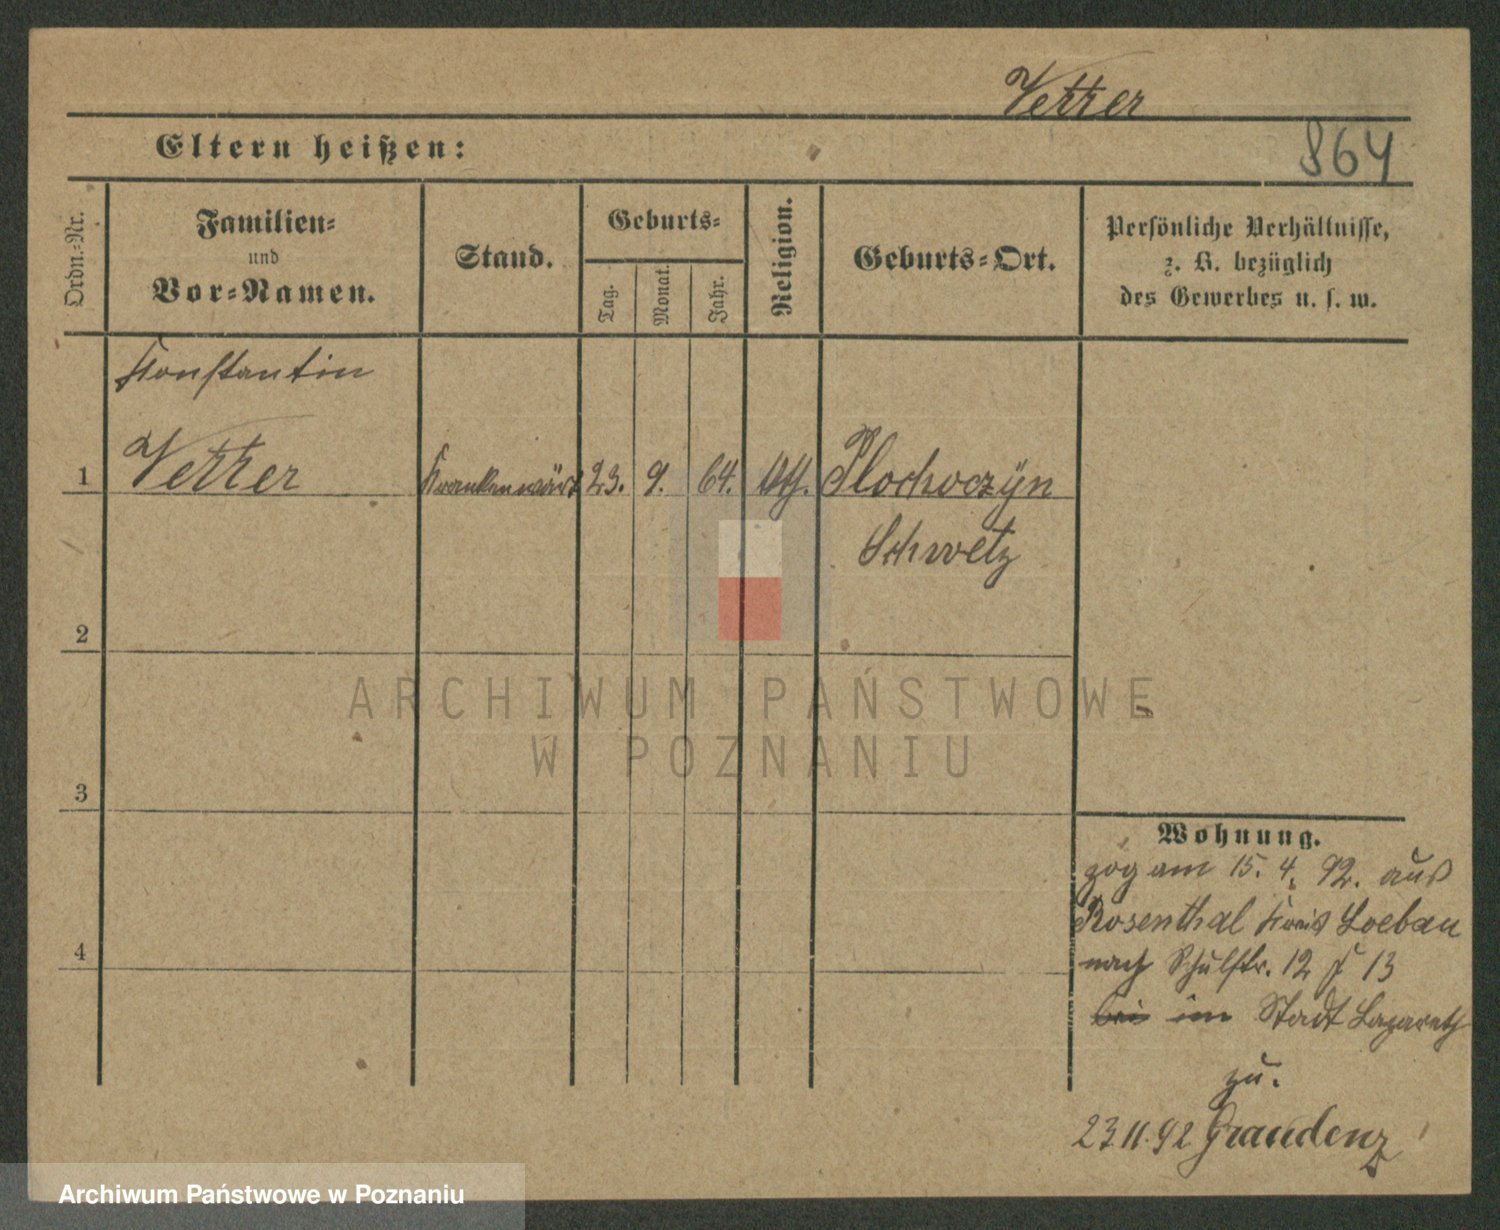 Vetter
864
Eltern heißen:
Ordn.-Nr.
Familien-
und
Vor-Namen.
Stand.
Geburts-
Tag.
Monat.
Jahr.
Religion.
Geburts-Ort.
Persönliche Verhältnisse,
z. B. bezüglich
des Gewerbes u. s. w.
Konstantin
1 Vetter Krankenwärt 23. 9. 64. kth. Plochoczyn
Schwetz
2
3
4
ARCHIWUM PAŃSTWOWE
W POZNANIU
Wohnung.
zog am 15. 4. 92. aus
Rosenthal Kreis Loebau
nach Schulstr. 12 13
bei im Stadt Lazareth
zu.
23.11.92 Graudenz
Archiwum Państwowe w Poznaniu